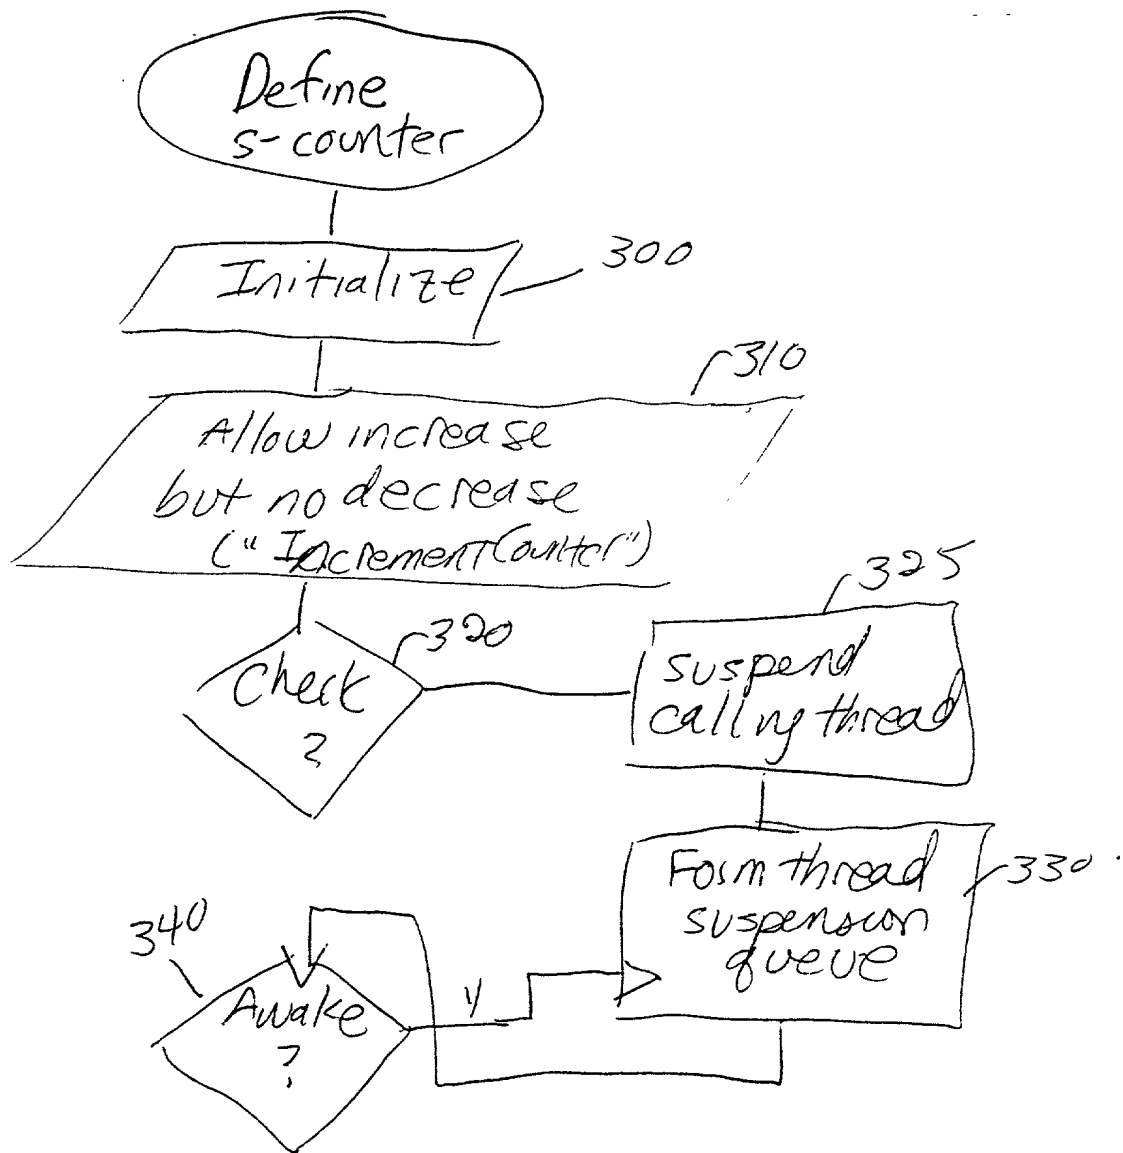 Define
s-counter
Initialize
300
310
Allow increase
but no decrease
("IncrementCounter")
325
320
Check
?
suspend
calling thread
Form thread
suspension
queue
330
340
Awake
?
Y